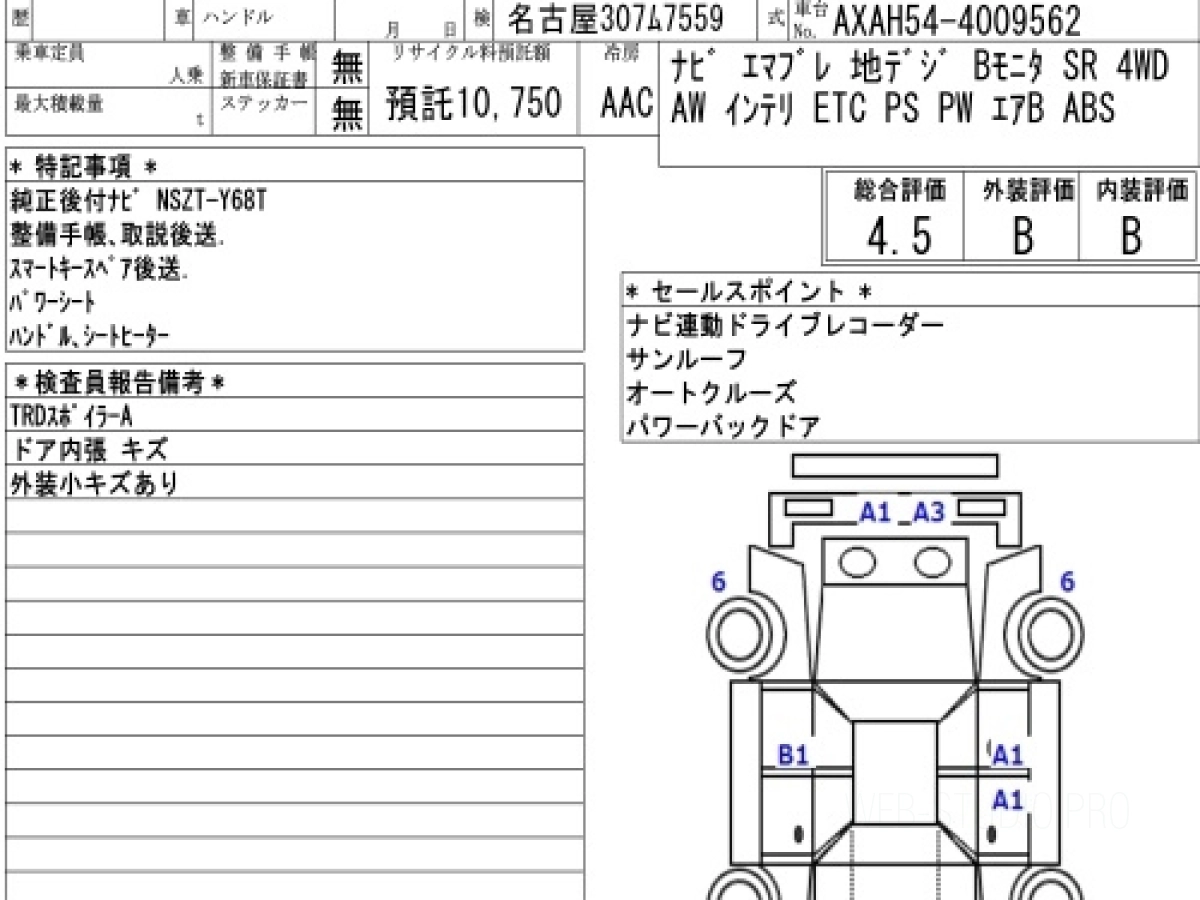 歴 車 ハンドル 月 日 検 名古屋307ム7559 式 車台No. AXAH54-4009562
乗車定員 人乗 整備手帳 無 リサイクル料預託額 冷房 ナビ エマブレ 地デジ Bモニタ SR 4WD
新車保証書
最大積載量 t ステッカー 無 預託10,750 AAC AW インテリ ETC PS PW エアB ABS
* 特記事項 *
純正後付ナビ NSZT-Y68T
整備手帳、取説後送.
スマートキースペア後送.
パワーシート
ハンドル、シートヒーター
総合評価 外装評価 内装評価
4.5 B B
* セールスポイント *
ナビ連動ドライブレコーダー
サンルーフ
オートクルーズ
パワーバックドア
*検査員報告備考*
TRDスポイラーA
ドア内張 キズ
外装小キズあり
A1 A3
6 6
B1 A1
A1